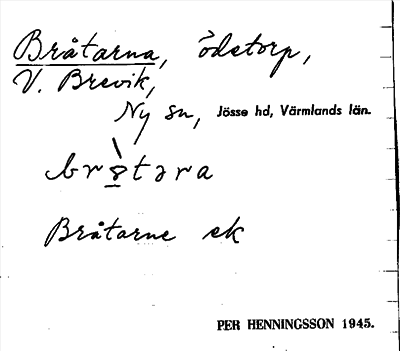 Bråtarna, ödetorp,
V. Brevik,
Ny sn, Jösse hd, Värmlands län.
Bråtarne ek
PER HENNINGSSON 1945.